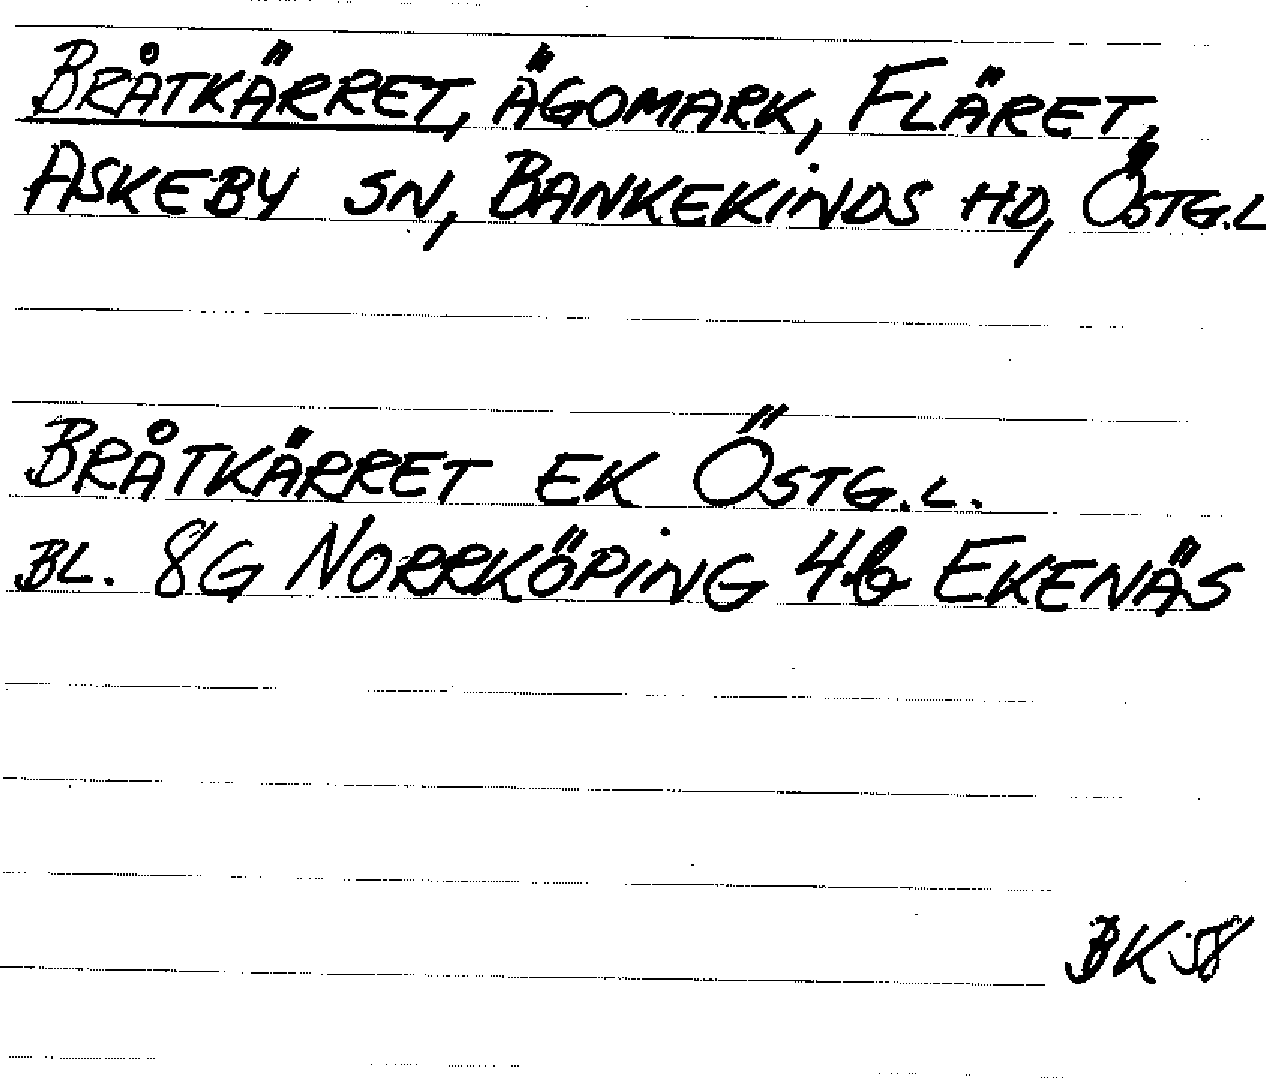 BRÅTKÄRRET, ÄGOMARK, FLÄRET,
ASKEBY SN, BANKEKINDS HD, ÖSTG.L
BRÅTKÄRRET EK ÖSTG.L.
BL. 8G NORRKÖPING 4b EKENÄS
BK 58